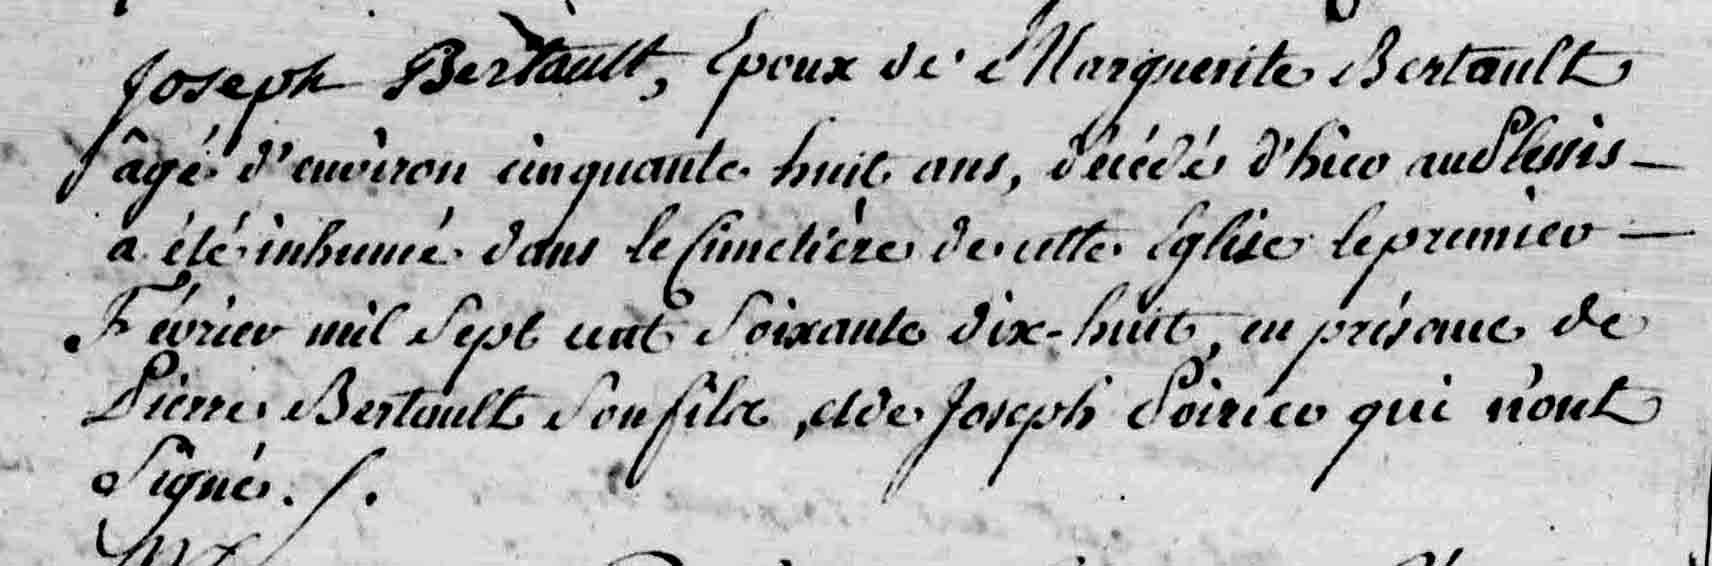 Joseph Bertault, Epoux de Marguerite Bertault
âgé d'environ cinquante huit ans, décédé d'hier au Plessis —
a été inhumé dans le Cimetière de cette Eglise le premier —
Février mil Sept cent Soixante dix-huit, en présence de
Pierre Bertault Son fils, et de Joseph Poirier qui n'ont
Signé. /.